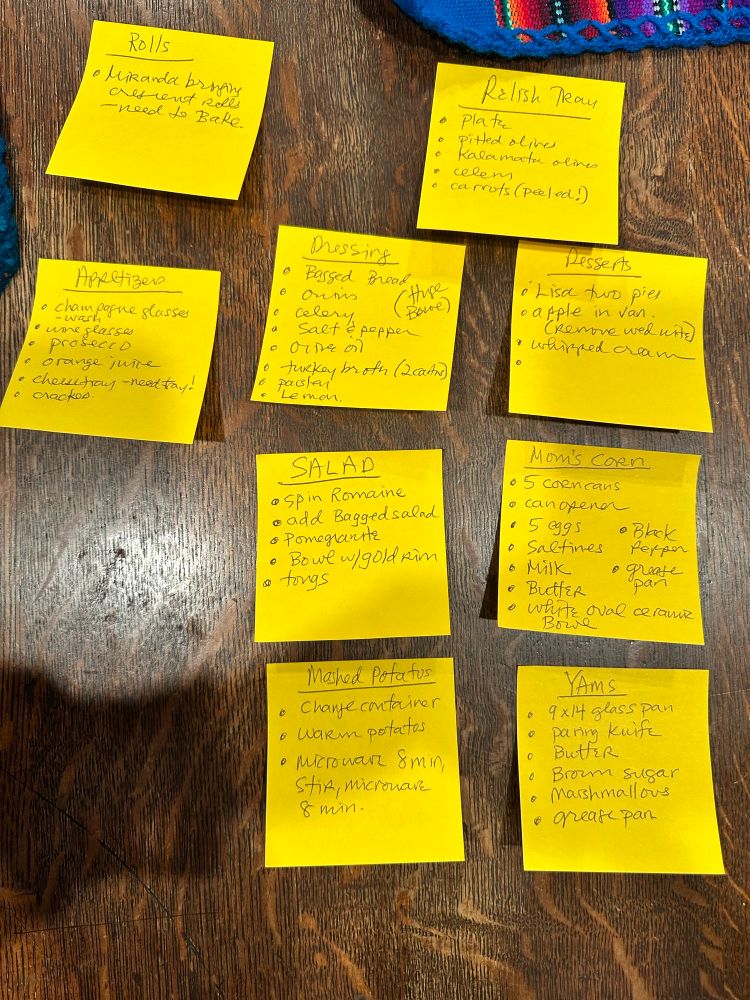 Rolls
• Miranda bringing
crescent rolls
- need to Bake.
Relish Tray
• plate
• pitted olives
• Kalamata olives
• celery
• carrots (peeled!)
Appetizers
• champagne glasses
- wash
• wine glasses
• prosecco
• orange juice
• cheese tray - need tray!
• crackers.
Dressing
• Bagged Bread
• onions
(Huge
Bowl)
• celery
• Salt & pepper
• olive oil
• turkey broth (2 cartons)
• parsley
• Lemon.
Desserts
• Lisa two pies
• apple in van.
(Remove wed nite)
• whipped cream
•
SALAD
• spin Romaine
• add Bagged salad
• Pomegranate
• Bowl w/gold rim
• tongs
Mom's Corn
• 5 corn cans
• can opener
• 5 eggs
• Saltines
• Milk
• Butter
• white oval ceramic
Bowl
• Black
Pepper
• grease
pan
Mashed Potatos
• Change container
• warm potatos
• Microwave 8 min,
Stir, microwave
8 min.
YAMS
• 9x14 glass pan
• paring knife
• Butter
• Brown sugar
• Marshmallows
• grease pan